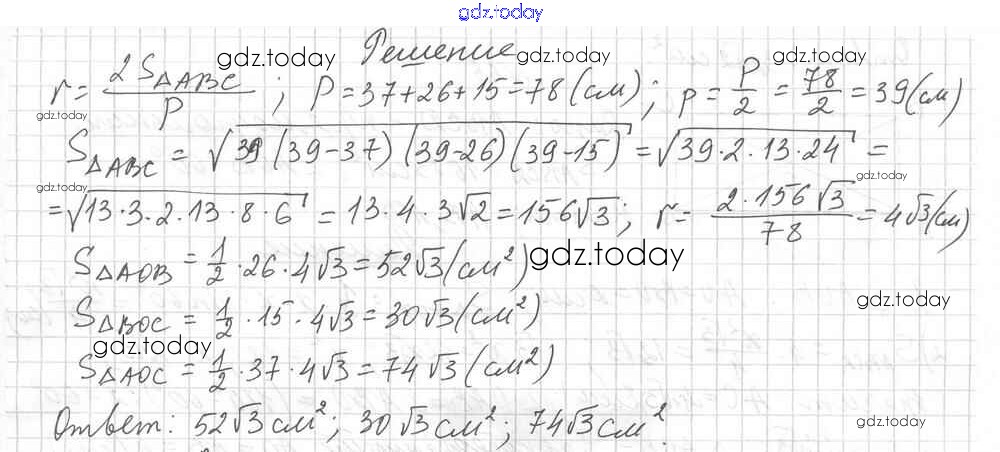 gdz.today
Решение
gdz.today gdz.today gdz.today
r = 2S△ABC / P ; P = 37+26+15 = 78 (см) ; p = P/2 = 78/2 = 39 (см)
gdz.today
S△ABC = √39 (39-37) (39-26) (39-15) = √39·2·13·24 =
gdz.today gdz.today
= √13·3·2·13·8·6 = 13·4·3√2 = 156√3 ; r = 2·156√3 / 78 = 4√3 (см)
S△AOB = 1/2 · 26 · 4√3 = 52√3 (см²) gdz.today
gdz.today
S△BOC = 1/2 · 15 · 4√3 = 30√3 (см²)
gdz.today
S△AOC = 1/2 · 37 · 4√3 = 74√3 (см²)
Ответ: 52√3 см²; 30√3 см²; 74√3 см².
gdz.today